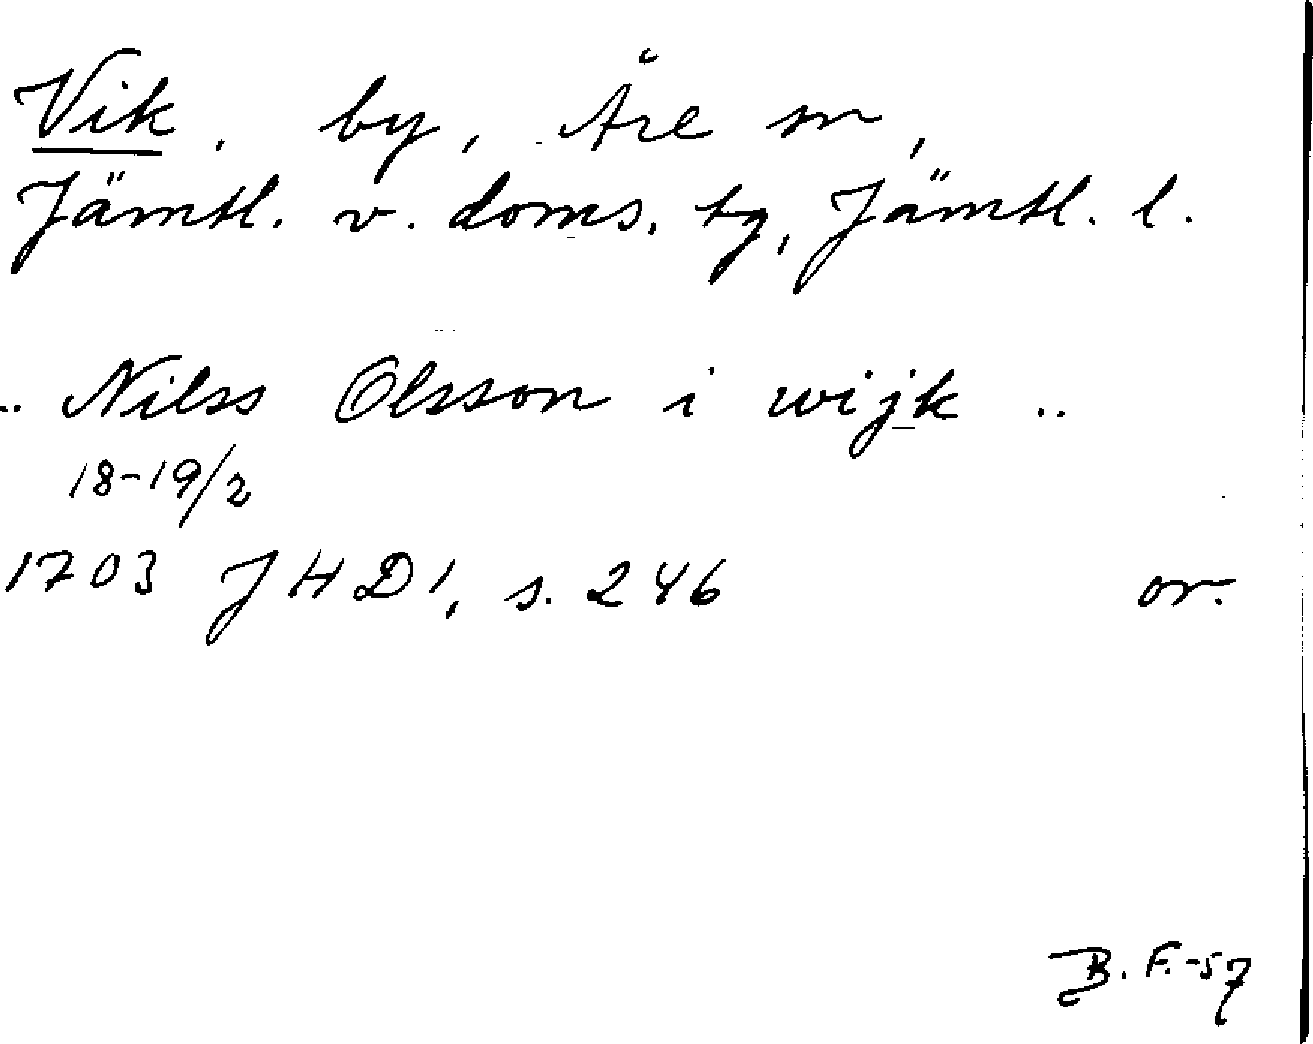 Vik, by, Åre sn,
Jämtl. v. doms. tg, Jämtl. l.
.. Nilss Olsson i wijk ..
18-19/2
1703 JHD 1, s. 246 or.
B. F. -57